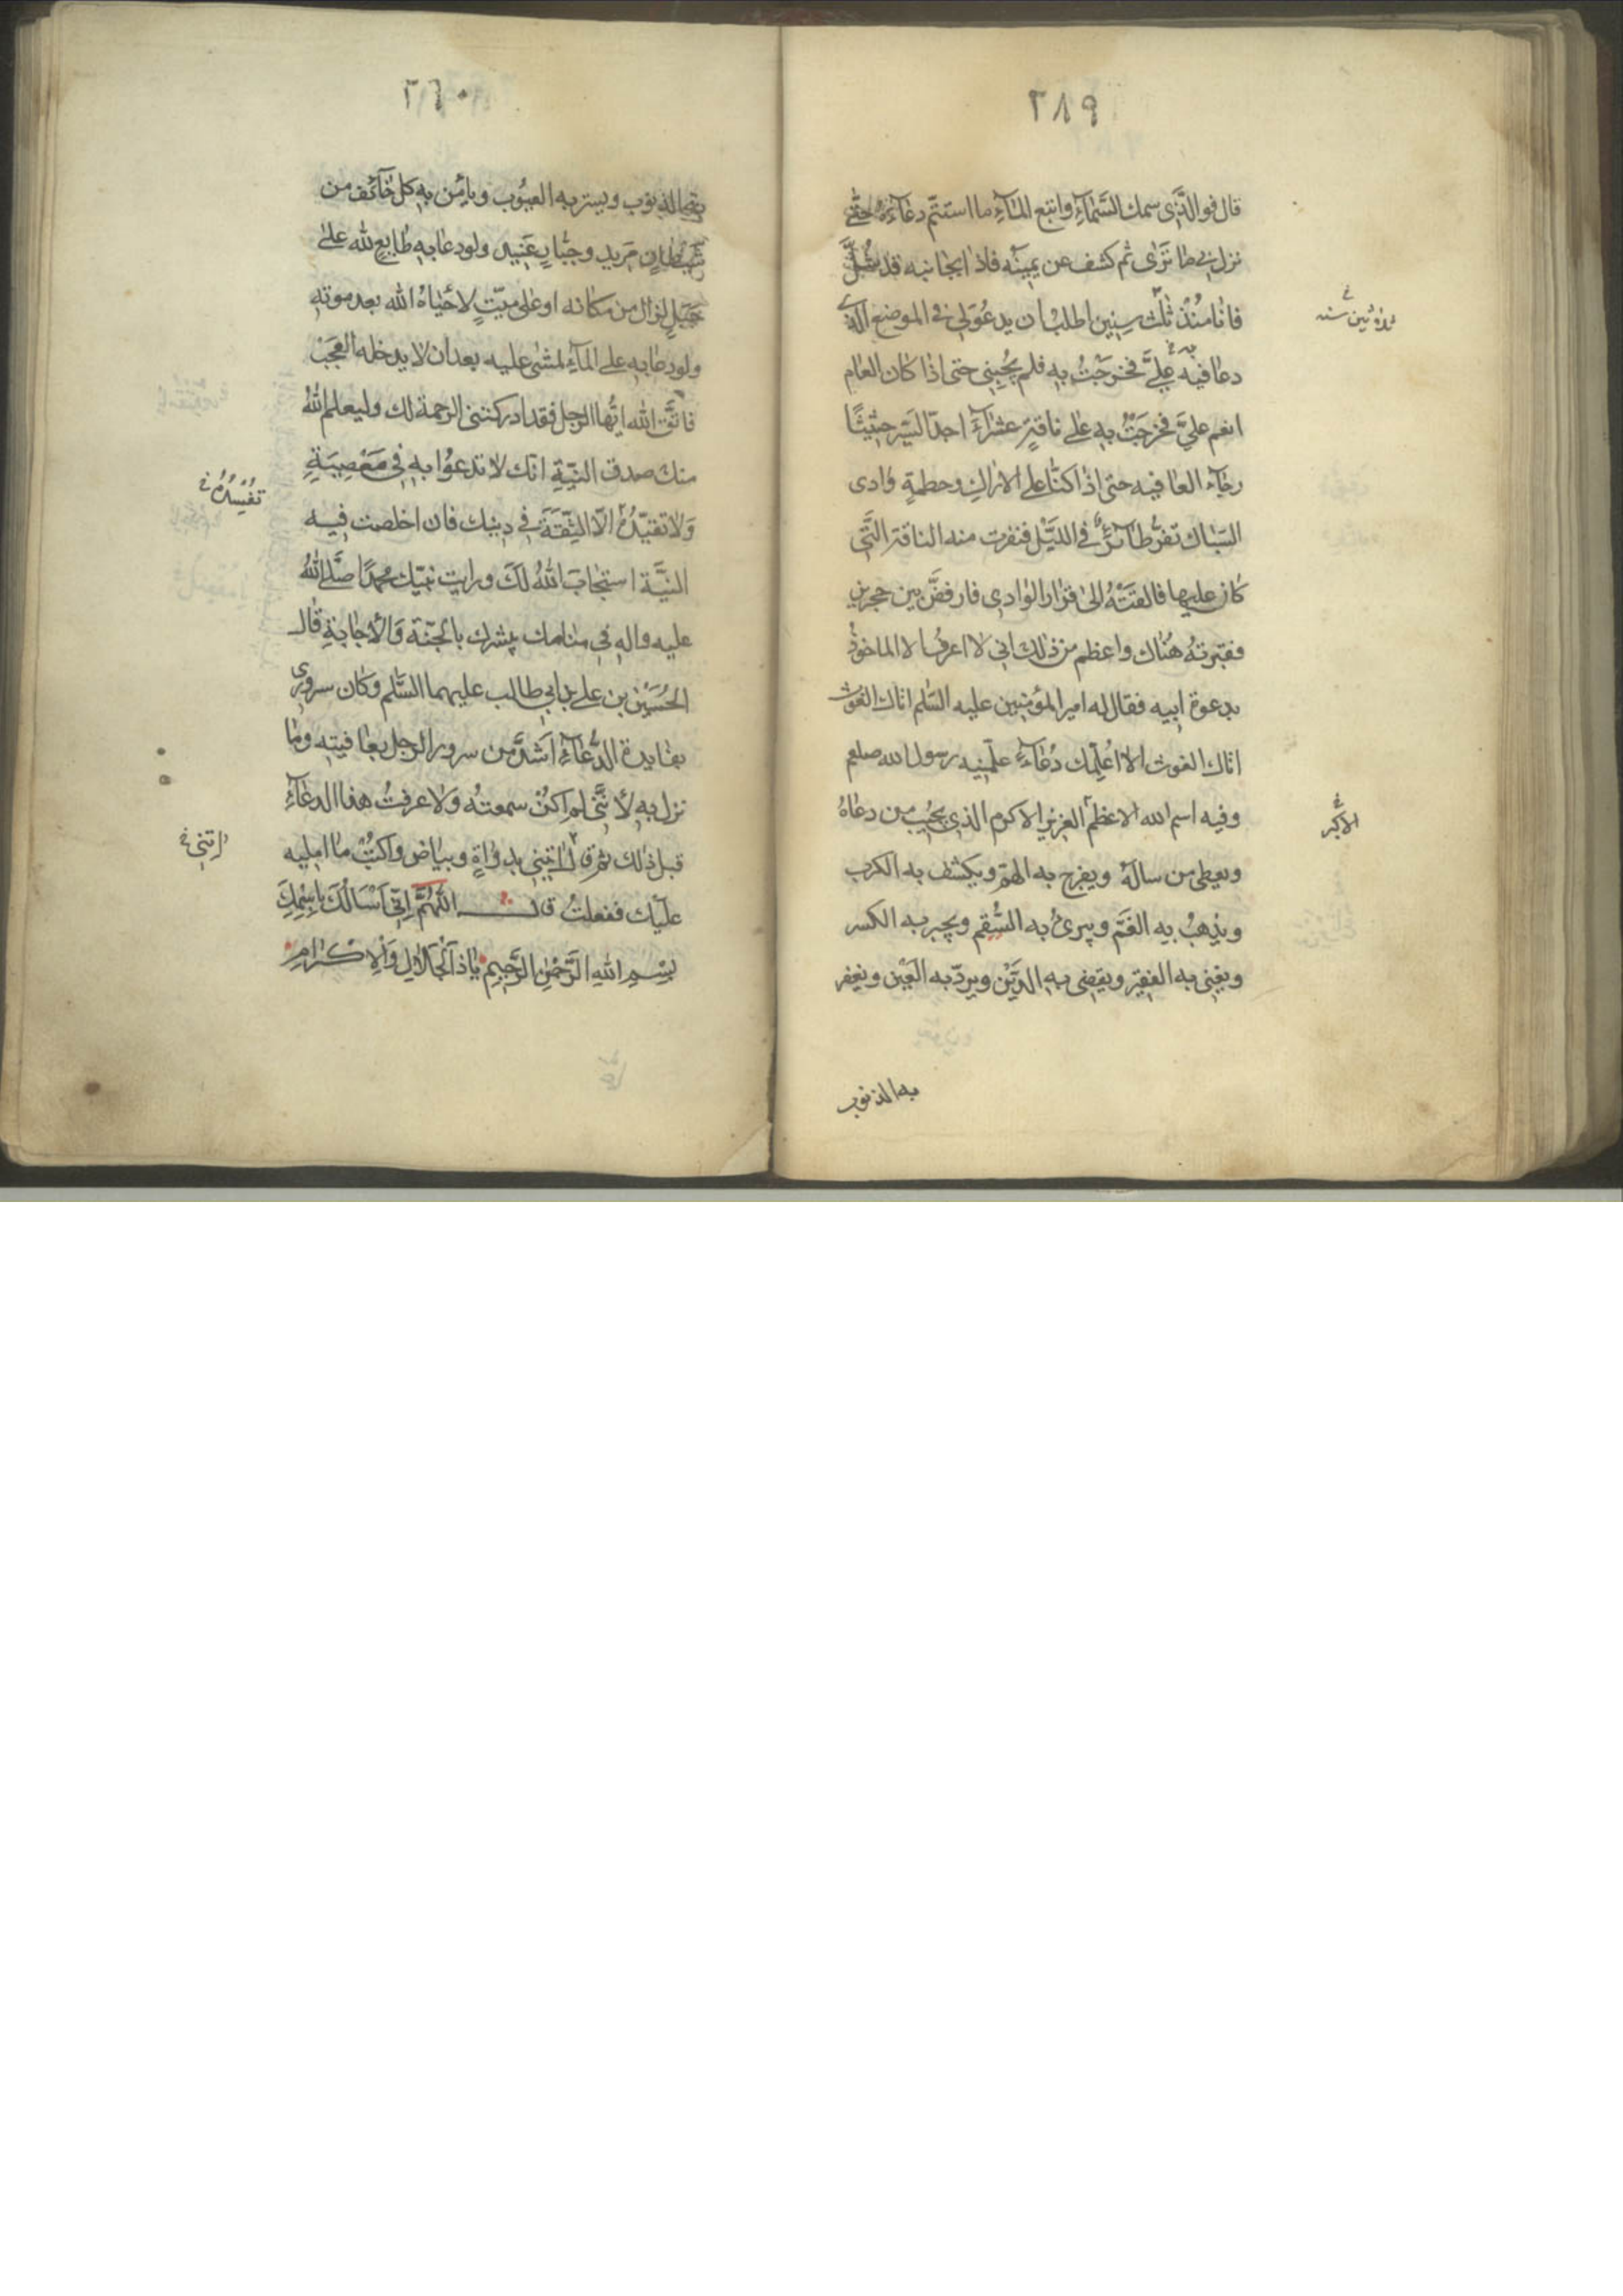 ٢٨٩
قال فو الذى سمك السَّمآءِ وانبع المآءِ ما استتمّ دعآئه حتّى
نزل بى ما ترى ثم كشف عن يمينه فاذا بجانبه قد شُلَّ
فانا منذ ثلث سنين اطلب ان يدعو لى فى الموضع الذى
ثلاثين سنه خ
دعا فيه علىَّ فلم يجبنى حتى اذا كان العام
انعم علىَّ فخرجتُ به على ناقةٍ عشرآءَ اجدّ السير حثيثًا
رجآء العافيه حتى اذا كنّا على الاراك وحطمةٍ وادى
السّباك نفر طآئرٌ فى اللَّيل فنفرت منه الناقة الَّتى
كان عليها فالقته الى قرار الوادى فارفضَّ بين حجرين
فقبرته هناك واعظم من ذلك انى لا اعرف الا الماخوذ
بدعوة ابيه فقال له امير المؤمنين عليه السّلم اتاك الغوث
اتاك الغوث الا اعلّمك دُعآءً علّمنيه رسول الله صلعم
وفيه اسم الله الاعظم العزيز الاكرم الذى يجيب من دعاهُ
الاكبر خ
ويعطى من سالهُ ويفرج به الهمّ ويكشف به الكرب
ويذهبُ به الغَمّ ويبرئ به السُّقم ويجبر به الكسر
ويغنى به الفقير ويقضى به الدَّيْن ويردّ به العَيْن ويغفر
به الذنوب
٢٩٠
به الذنوب ويستر به العيُوب ويامن به كل خآئف من
شيطانٍ مَريدٍ وجبّارٍ عَنيدٍ ولو دعا به طايع لله على
جَبَلٍ لزال من مكانه او على ميّتٍ لاحياهُ الله بعد موته
ولو دعا به على المآءِ لمشى عليه بعد ان لا يدخله العجب
فاتَّق الله ايُّها الرجل فقد ادركتنى الرحمة لك وليعلم اللهُ
منك صدق النيّةِ انك لا تدعوا به فى مَعْصِيَةِ
ولا تفيّدُهُ الّا الثّقَةَ فى دينك فان اخلصت فيه
تفيدُهُ خ
النيَّة استجابَ اللهُ لكَ ورايت نبيّك محمدًا صلَّى اللهُ
عليه واله فى منامك يبشرك بالجنّة والاجابةِ قال
الحُسَيْن بن على بن ابى طالب عليهما السَّلم وكان سرورى
بفايدة الدُّعآءِ اَشدَّ من سرور الرجل بعافيته وما
نزل به لأنَّنى لم اكن سمعتهُ ولا عرفتُ هذا الدعآءَ
قبل ذلك ثم قال ائتنى بدواةٍ وبياض واكتبْ ما امليه
ائتنى خ
عليك ففعلتُ قال اللّهُمَّ اِنّى اَسْاَلُكَ بِاسْمِكَ
بِسْمِ اللهِ الرَّحْمٰنِ الرَّحِيمِ يا ذَا الْجَلالِ وَالْاِكْرامِ